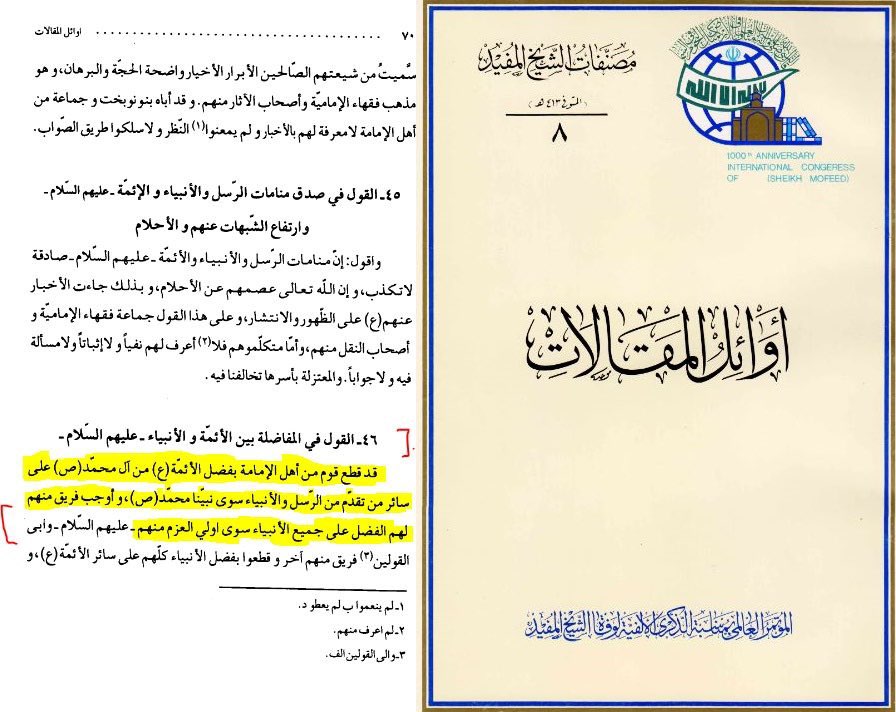 ٧٠ . . . . . . . . . . . . . . . . . . . . . . . . . . . . . . . . . . . . . . . . . . . اوائل المقالات
سمّيتُ من شيعتهم الصّالحين الأبرار الأخيار واضحة الحجّة والبرهان، و هو
مذهب فقهاء الإماميّة وأصحاب الآثار منهم. و قد أباه بنو نوبخت و جماعة من
أهل الإمامة لا معرفة لهم بالأخبار و لم يمعنوا(١) النّظر و لا سلكوا طريق الصّواب.
٤٥ـ القول في صدق منامات الرّسل والأنبياء و الإئمّة ـ عليهم السّلام ـ
وارتفاع الشّبهات عنهم و الأحلام
واقول: إنّ منامات الرّسل والأنبياء والأئمّة ـ عليهم السّلام ـ صادقة
لا تكذب، و إن اللّه تعالى عصمهم عن الأحلام، و بذلك جاءت الأخبار
عنهم(ع) على الظّهور والانتشار، و على هذا القول جماعة فقهاء الإماميّة و
أصحاب النقل منهم، وأمّا متكلّموهم فلا(٢) أعرف لهم نفياً ولا إثباتاً ولا مسألة
فيه و لا جواباً. والمعتزلة بأسرها تخالفنا فيه.
٤٦ـ القول في المفاضلة بين الأئمّة و الأنبياء ـ عليهم السّلام ـ
قد قطع قوم من أهل الإمامة بفضل الأئمّة(ع) من آل محمّد(ص) على
سائر من تقدّم من الرّسل والأنبياء سوى نبيّنا محمّد(ص)، و أوجب فريق منهم
لهم الفضل على جميع الأنبياء سوى اولي العزم منهم ـ عليهم السّلام ـ وأبى
القولين(٣) فريق منهم آخر و قطعوا بفضل الأنبياء كلّهم على سائر الأئمّة(ع)، و
١ـ لم ينعموا ب لم يعطو د.
٢ـ لم اعرف منهم.
٣ـ والى القولين الف.
مصنّفات الشيخ المفيد
(المتوفى ٤١٣ هـ)
٨
لا اله الا الله
1000th ANNIVERSARY
INTERNATIONAL CONGERESS
OF (SHEIKH MOFEED)
أوائل المقالات
المؤتمر العالمي بمناسبة الذكرى الألفية لوفاة الشيخ المفيد